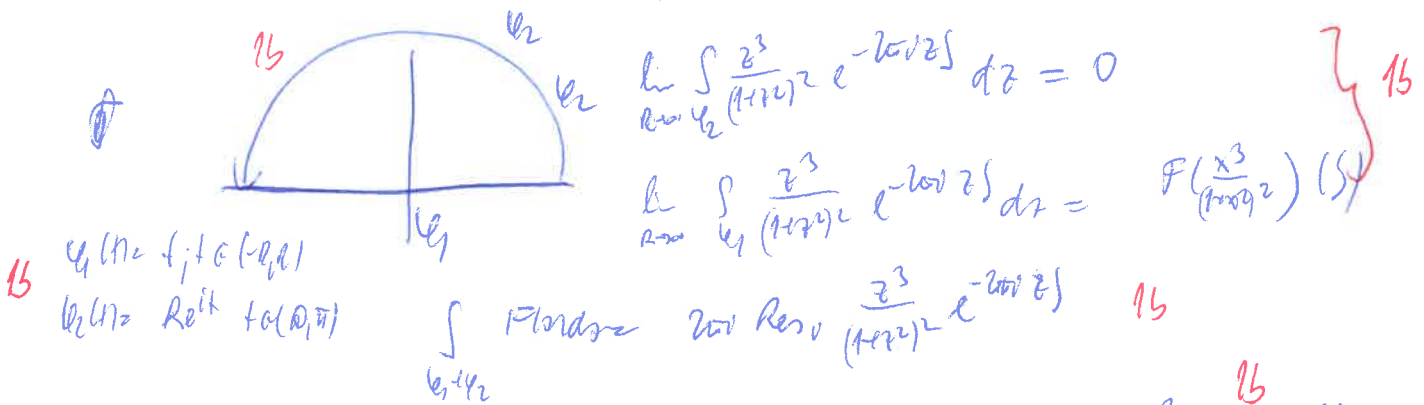 1b φ₂
φ₂ lim_{R→∞} ∫_{φ₂} z³/(1+z²)² e^{-2πizξ} dz = 0 1b
lim_{R→∞} ∫_{φ₁} z³/(1+z²)² e^{-2πizξ} dz = F(x³/(1+x²)²)(ξ)
φ₁
1b φ₁(t) = t; t ∈ (-R,R)
φ₂(t) = Re^{it} t ∈ (0,π) ∫_{φ₁+φ₂} F(z)dz = 2πi Res_i z³/(1+z²)² e^{-2πizξ} 1b
1b